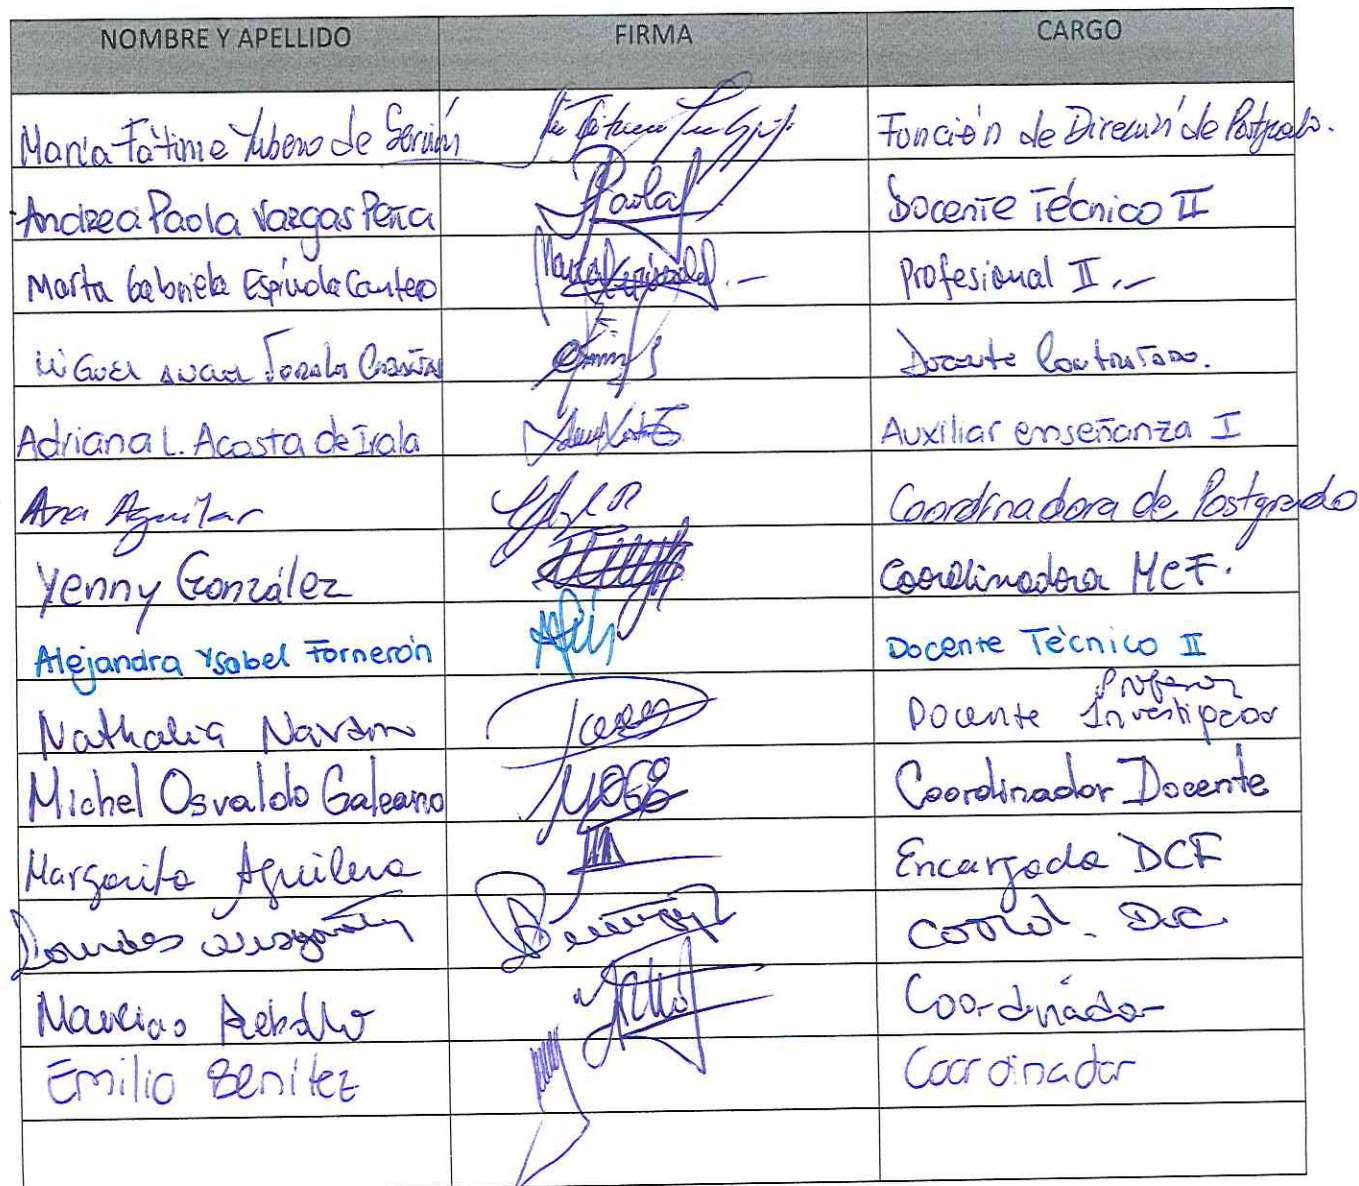 NOMBRE Y APELLIDO FIRMA CARGO
María Fátima Yubero de Servín Función de Dirección de Postgrado.
Andrea Paola Vargas Peña Paola Docente Técnico II
Marta Gabriela Espínola Cantero Profesional II
Miguel Docente Contratado.
Adriana L. Acosta de Irala Auxiliar enseñanza I
Ana Aguilar Coordinadora de Postgrado
Yenny González Coordinadora MCF.
Alejandra Ysabel Fornerón Docente Técnico II
Profesor
Nathalia Navarro Docente Investigador
Michel Osvaldo Galeano MOGG Coordinador Docente
Margarita Aguilera Encargada DCF
Lourdes Coord.
Coordinador
Emilio Benítez Coordinador